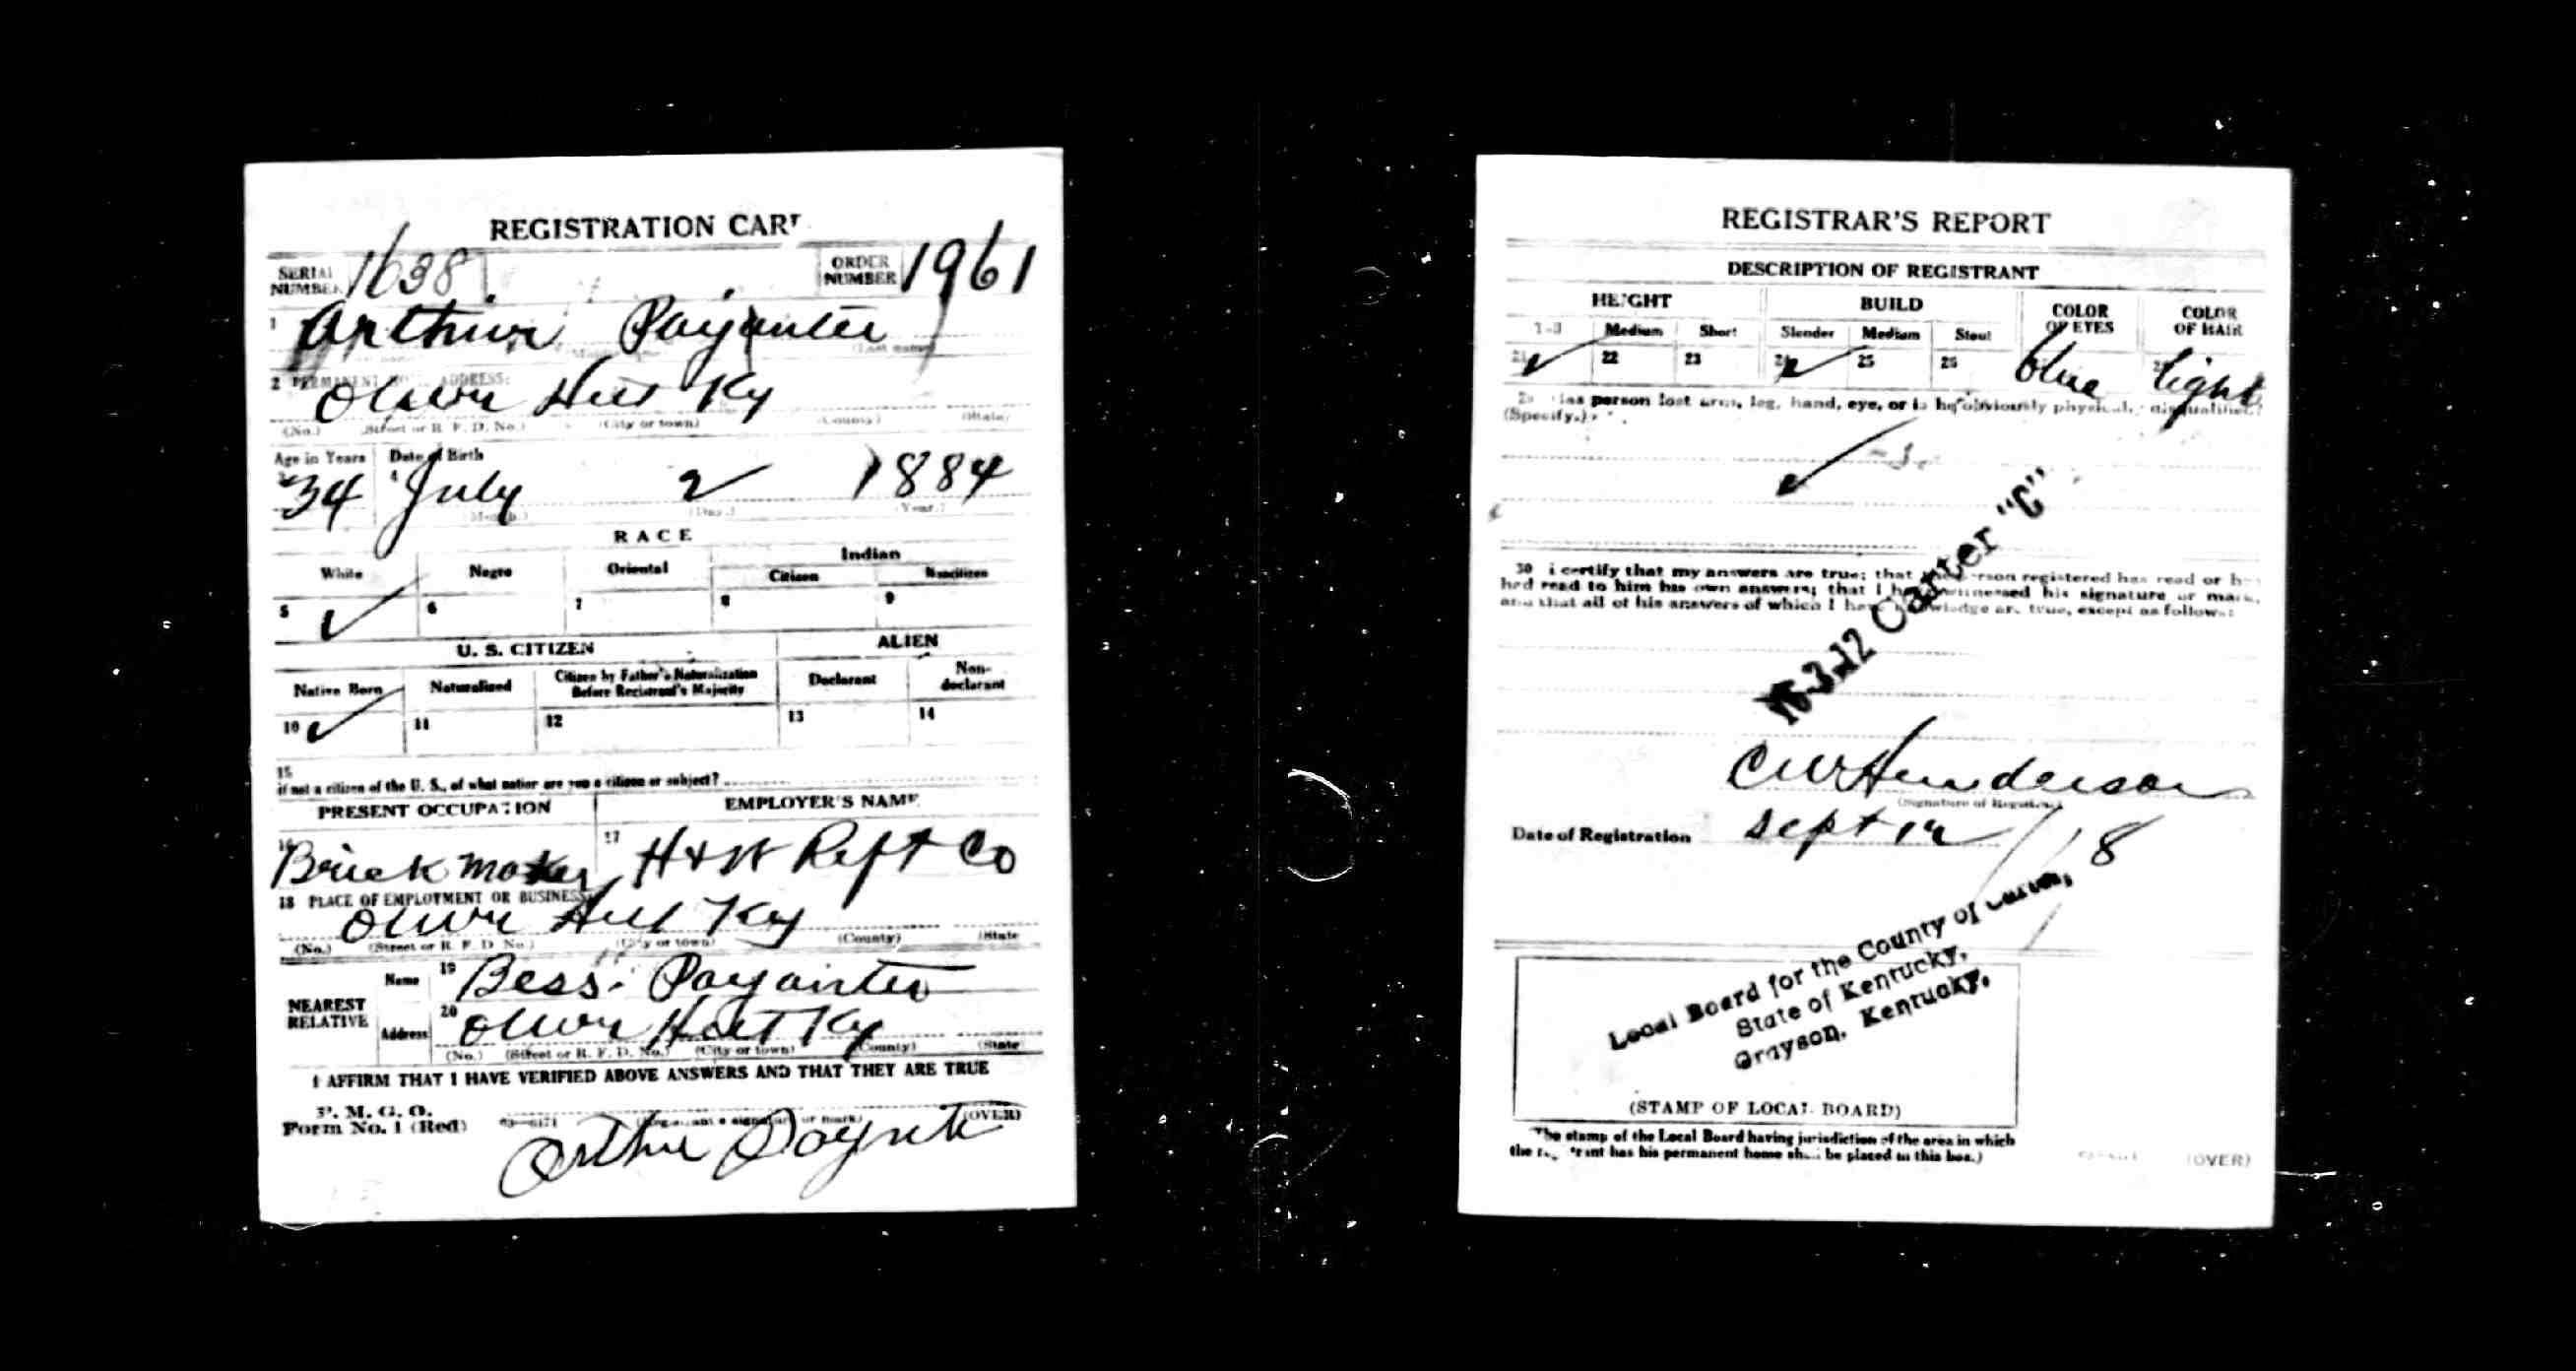 REGISTRATION CAR
SERIAL NUMBER 1638 ORDER NUMBER 1961
1 Arthur Payanter
2 PERMANENT HOME ADDRESS:
Oliver Hill Ky
(No.) (Street or R. F. D. No.) (City or town) (County) (State)
Age in Years Date of Birth
34 July 2 1884
(Month.) (Day.) (Year.)
RACE
White Negro Oriental Indian
Citizen Noncitizen
5 ✓ 6 7 8 9
U. S. CITIZEN ALIEN
Native Born Naturalized Citizen by Father's Naturalization Before Registrant's Majority Declarant Non-declarant
10 ✓ 11 12 13 14
15
If not a citizen of the U. S., of what nation are you a citizen or subject?
PRESENT OCCUPATION EMPLOYER'S NAME
16 Brick Maker 17 H & W Reft Co
18 PLACE OF EMPLOYMENT OR BUSINESS
Oliver Hill Ky
(No.) (Street or R. F. D. No.) (City or town) (County) (State
NEAREST RELATIVE
Name 19 Bess Payanter
Address 20 Oliver Hill Ky
(No.) (Street or R. F. D. No.) (City or town) (County) (State
I AFFIRM THAT I HAVE VERIFIED ABOVE ANSWERS AND THAT THEY ARE TRUE
P. M. G. O.
Form No. 1 (Red) (OVER)
Arthur Paynte
REGISTRAR'S REPORT
DESCRIPTION OF REGISTRANT
HEIGHT BUILD COLOR OF EYES COLOR OF HAIR
Medium Short Slender Medium Stout
21 ✓ 22 23 24 ✓ 25 26 blue light
29 Has person lost arm, leg, hand, eye, or is he obviously physically disqualified?
(Specify.)
✓
30 I certify that my answers are true; that the person registered has read or has
had read to him his own answers; that I have witnessed his signature or mark,
and that all of his answers of which I have knowledge are true, except as follows:
Carter "C"
C W Henderson
(Signature of Registrar)
Date of Registration Sept 12 / 18
Local Board for the County of Carter,
State of Kentucky,
Grayson, Kentucky.
(STAMP OF LOCAL BOARD)
(The stamp of the Local Board having jurisdiction of the area in which
the registrant has his permanent home shall be placed in this box.)
(OVER)